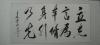 立志
言为
本修
身行
乃先